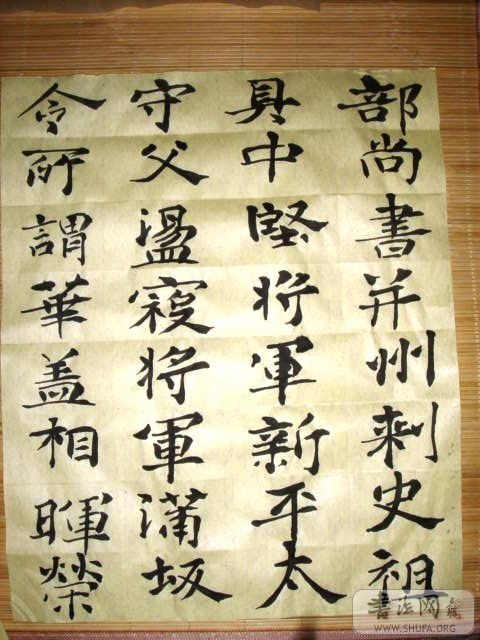 部尚書并州刺史祖
具中堅将軍新平太
守父盪寇将軍蒲坂
令所謂華盖相暉榮
書法网
WWW.SHUFA.ORG